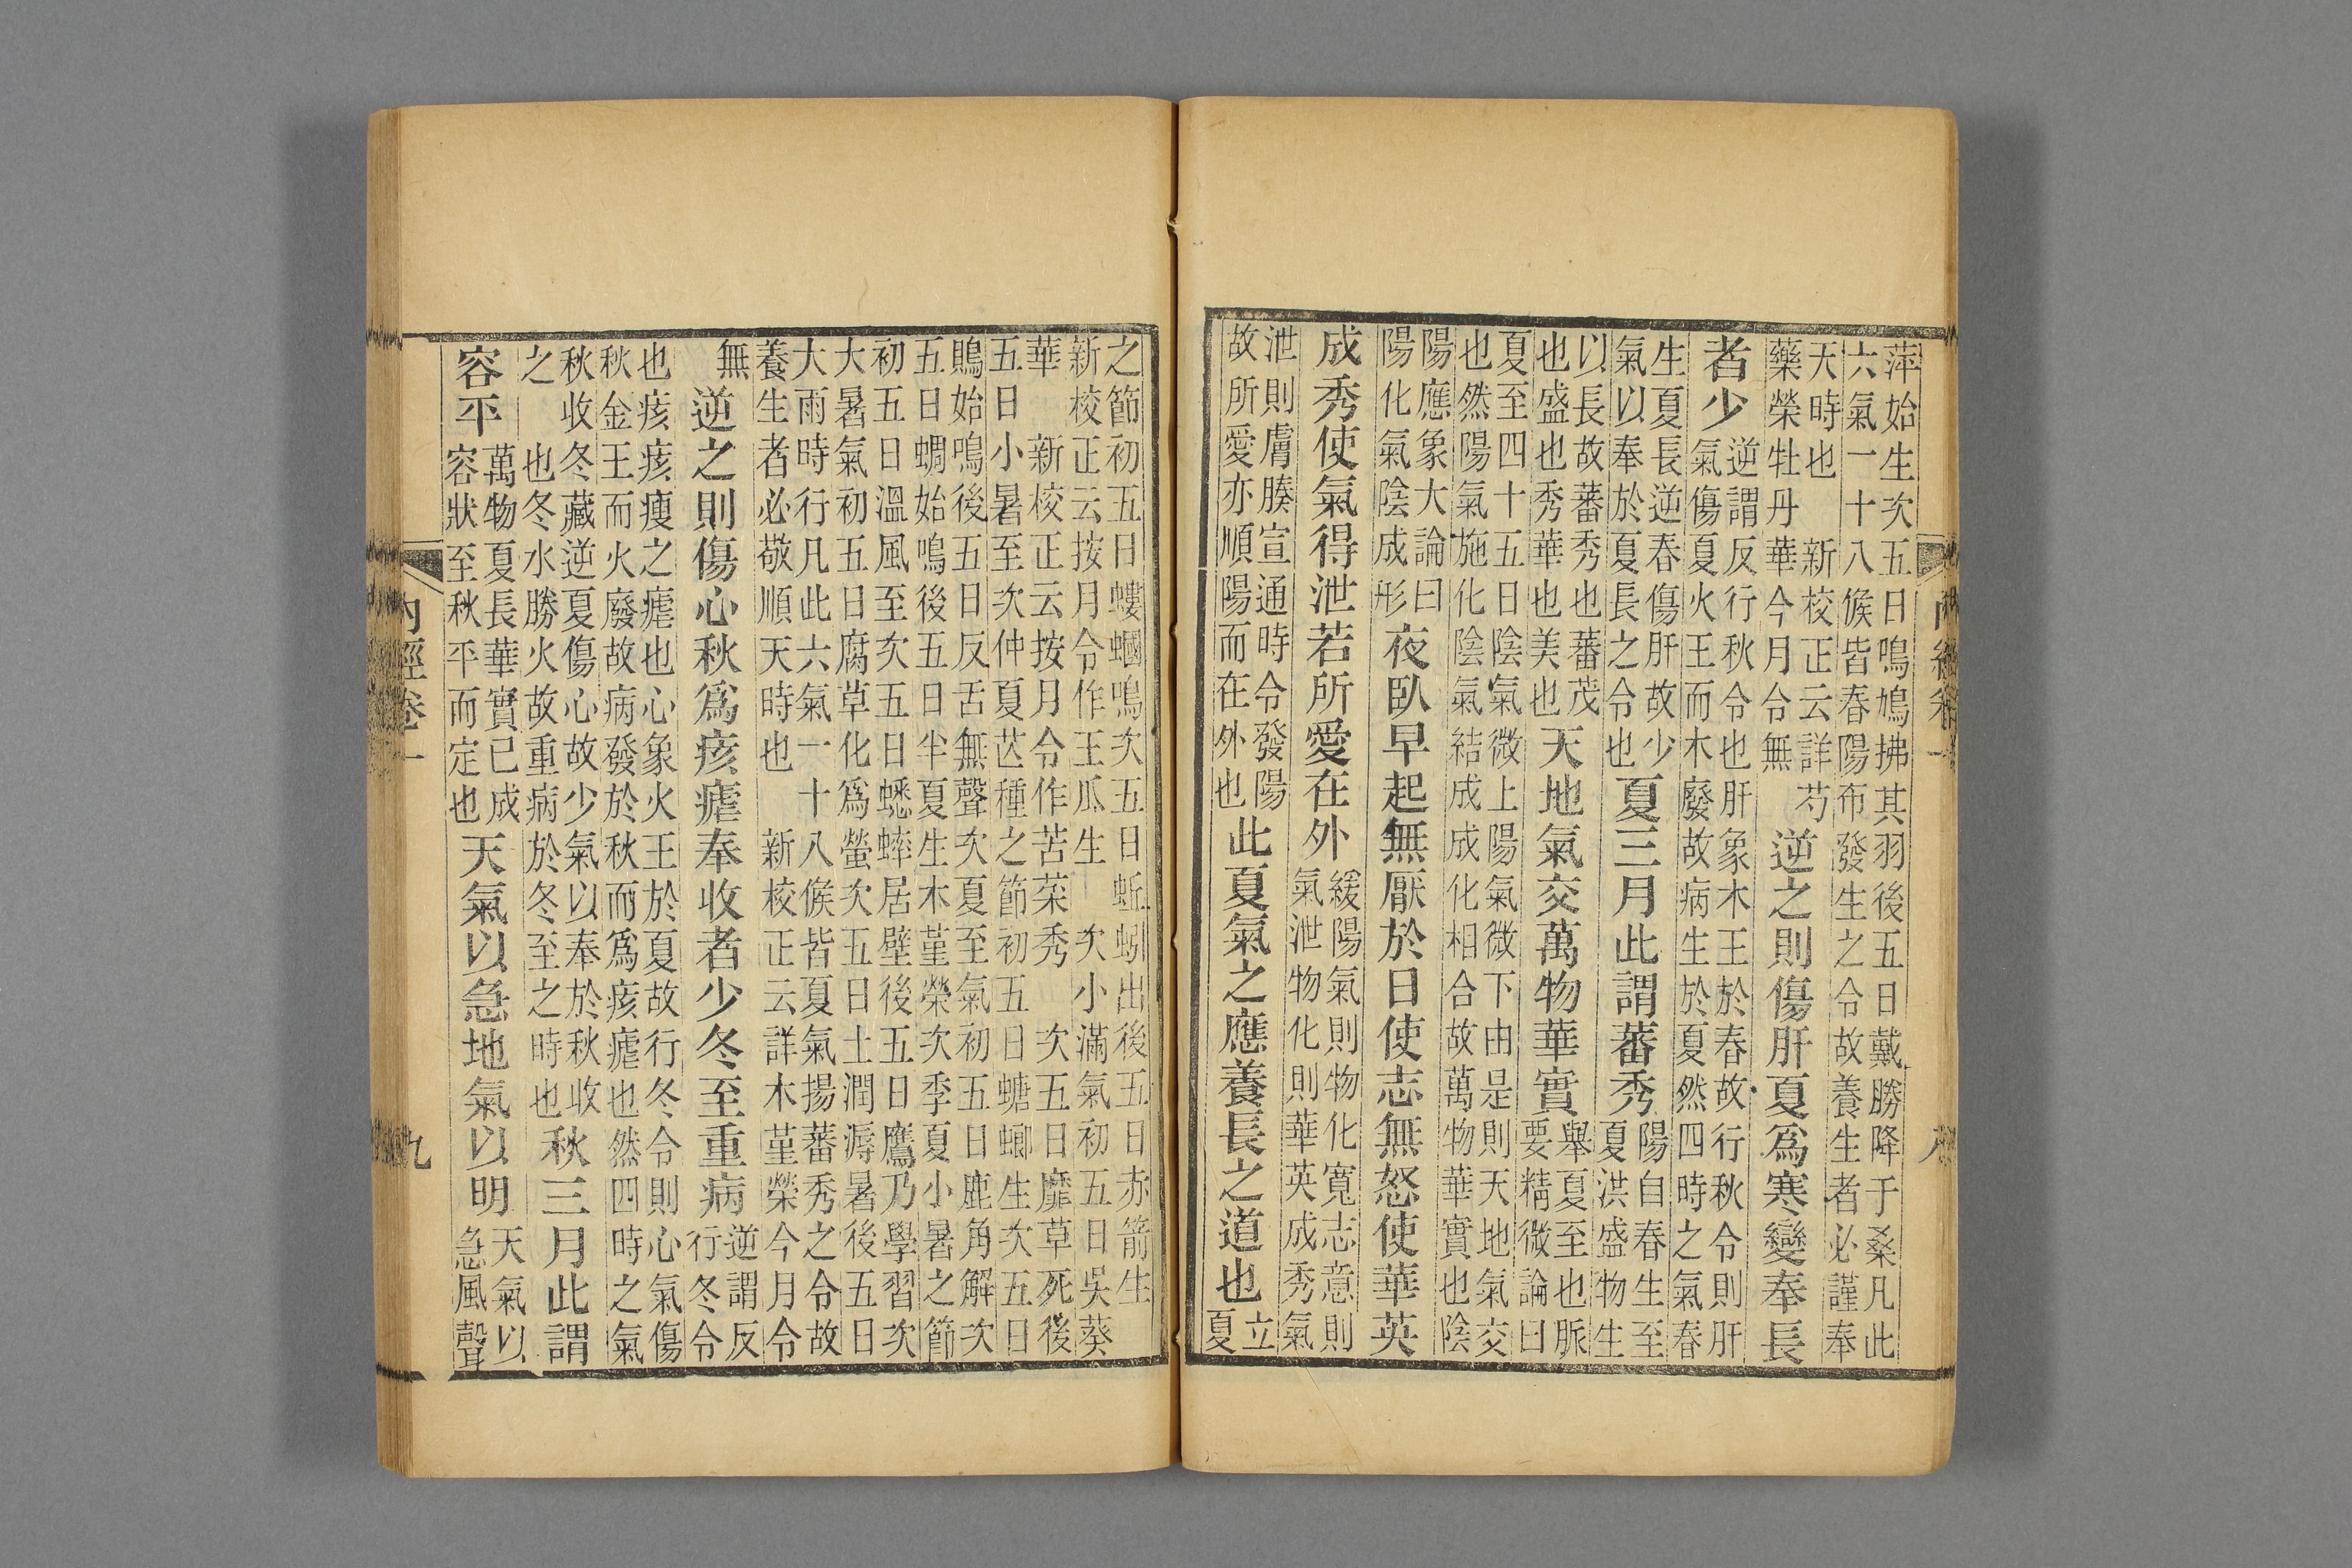 萍始生次五日鳴鳩拂其羽後五日戴勝降于桑凡此
六氣一十八候皆春陽布發生之令故養生者必謹奉
天時也　新校正云詳芍
藥榮牡丹華今月令無
逆之則傷肝夏爲寒變奉長
者少
逆謂反行秋令也肝象木王於春故行秋令則肝
氣傷夏火王而木廢故病生於夏然四時之氣春
生夏長逆春傷肝故少
氣以奉於夏長之令也
夏三月此謂蕃秀
陽自春生至
夏洪盛物生
以長故蕃秀也蕃茂
也盛也秀華也美也
天地氣交萬物華實
舉夏至也脈
要精微論曰
夏至四十五日陰氣微上陽氣微下由是則天地氣交
也然陽氣施化陰氣結成成化相合故萬物華實也陰
陽應象大論曰
陽化氣陰成形
夜臥早起無厭於日使志無怒使華英
成秀使氣得泄若所愛在外
緩陽氣則物化寬志意則
氣泄物化則華英成秀氣
泄則膚腠宣通時令發陽
故所愛亦順陽而在外也
此夏氣之應養長之道也
立
夏
之節初五日螻蟈鳴次五日蚯蚓出後五日赤箭生
新校正云按月令作王瓜生　次小滿氣初五日吳葵
華　新校正云按月令作苦菜秀　次五日靡草死後
五日小暑至次仲夏芒種之節初五日螗螂生次五日
鵙始鳴後五日反舌無聲次夏至氣初五日鹿角解次
五日蜩始鳴後五日半夏生木菫榮次季夏小暑之節
初五日溫風至次五日蟋蟀居壁後五日鷹乃學習次
大暑氣初五日腐草化爲螢次五日土潤溽暑後五日
大雨時行凡此六氣一十八候皆夏氣揚蕃秀之令故
養生者必敬順天時也　新校正云詳木菫榮今月令
無
逆之則傷心秋爲痎瘧奉收者少冬至重病
逆謂反
行冬令
也痎痎瘦之瘧也心象火王於夏故行冬令則心氣傷
秋金王而火廢故病發於秋而爲痎瘧也然四時之氣
秋收冬藏逆夏傷心故少氣以奉於秋收
之　也冬水勝火故重病於冬至之時也
秋三月此謂
容平
萬物夏長華實已成
容狀至秋平而定也
天氣以急地氣以明
天氣以
急風聲
內經卷一
九